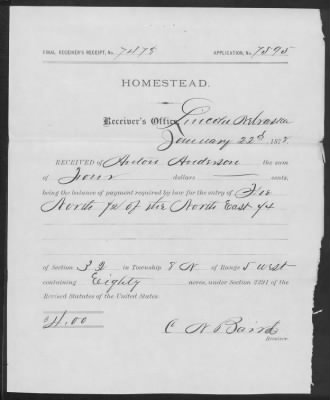 FINAL RECEIVER'S RECEIPT, No. 7878 APPLICATION, No. 7895
HOMESTEAD.
Receiver's Office, Lincoln Nebraska
January 22d 1878.
RECEIVED OF Anton Anderson the sum
of Four dollars cents,
being the balance of payment required by law for the entry of The
North 1/2 of the North East 1/4
of Section 32 in Township 8 N of Range 5 West
containing Eighty acres, under Section 2291 of the
Revised Statutes of the United States.
$4.00
C N Baird
Receiver.